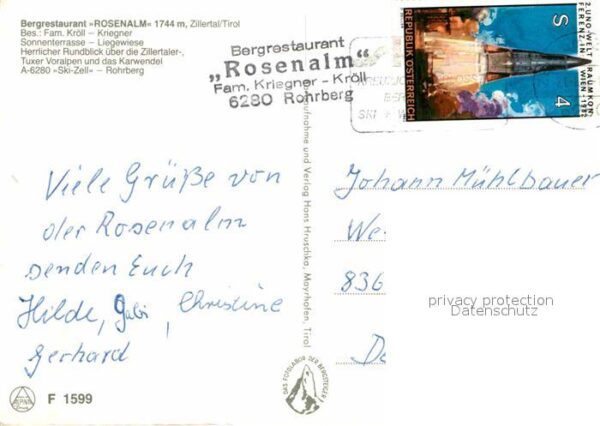 Bergrestaurant »ROSENALM« 1744 m, Zillertal/Tirol
Bes.: Fam. Kröll – Kriegner
Sonnenterrasse – Liegewiese
Herrlicher Rundblick über die Zillertaler-,
Tuxer Voralpen und das Karwendel
A-6280 »Ski-Zell« – Rohrberg
Bergrestaurant
„Rosenalm“
Fam. Kriegner - Kröll
6280 Rohrberg
2. UNO-WELTRAUMKON
FERENZ IN WIEN 1982
S 4
REPUBLIK ÖSTERREICH
SKI +
Viele Grüße von
der Rosenalm
senden Euch
Hilde, Gabi, Christine
Gerhard
Aufnahme und Verlag Hans Hruschka, Mayrhofen, Tirol
Johann Mühlbauer
We
836
privacy protection
Datenschutz
DAS FOTOLABOR DER BERGSTEIGER
F 1599